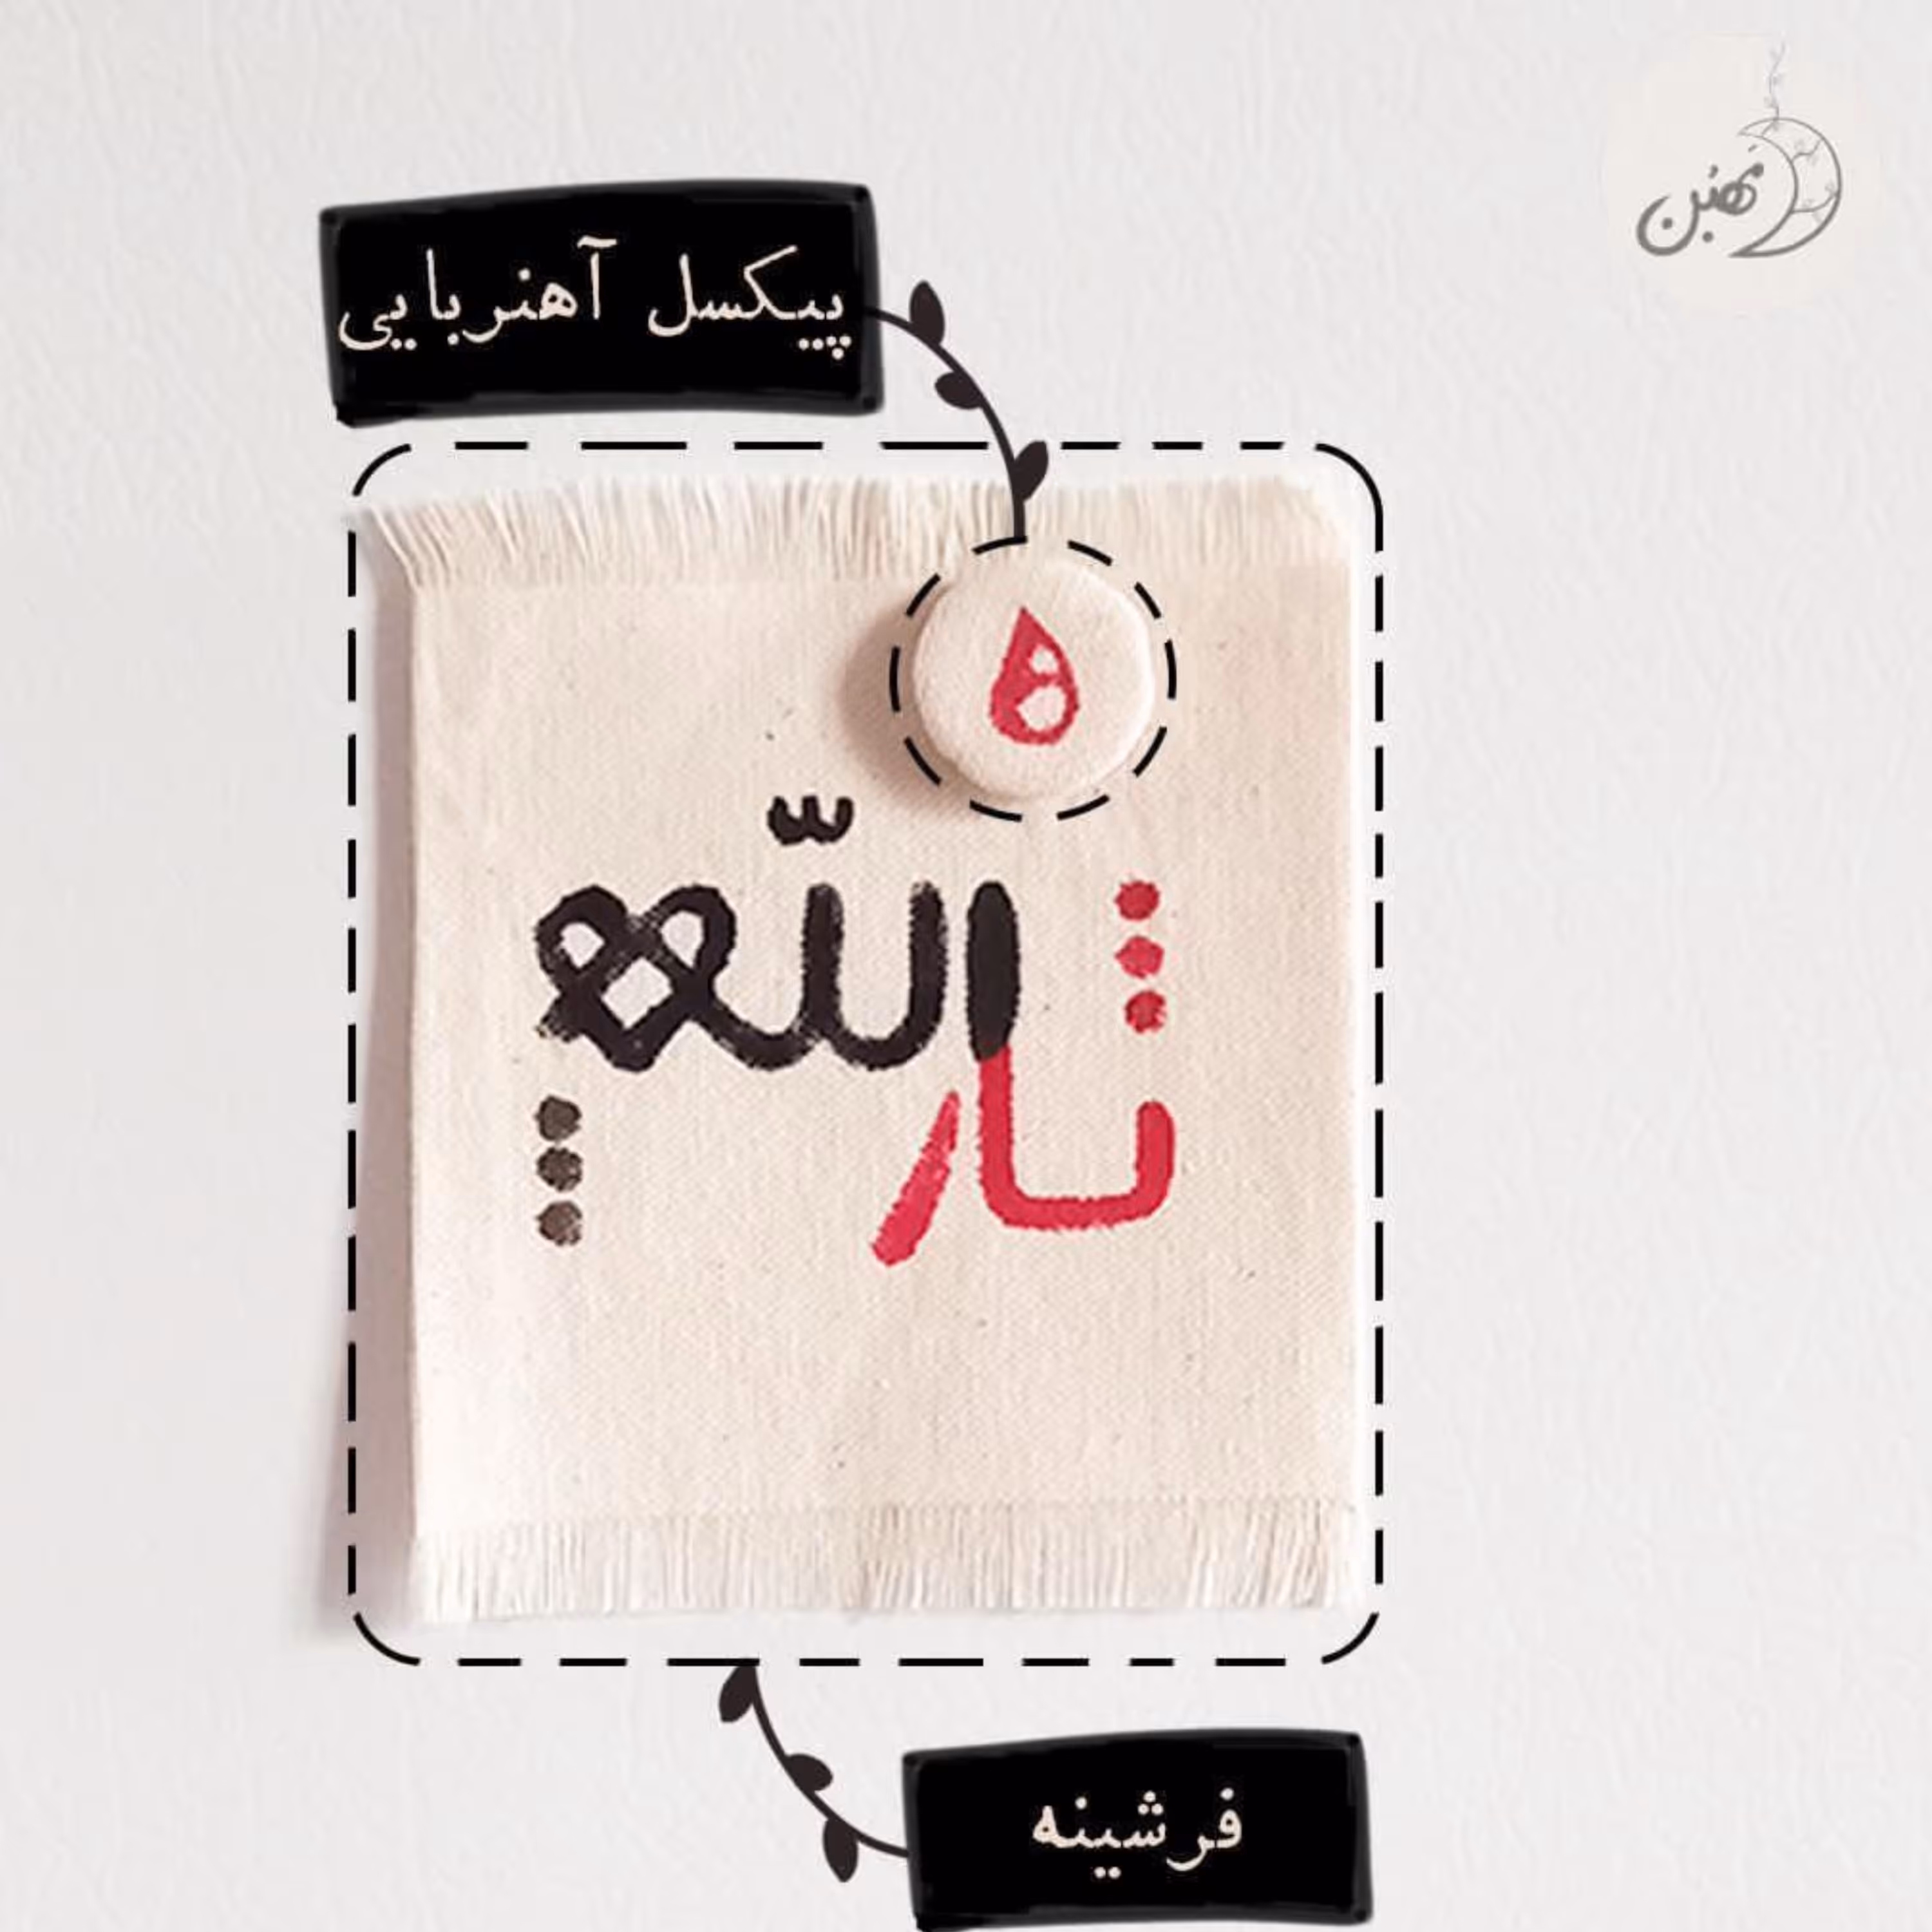 مَهبُن
پیکسل آهنربایی
ه
اللّه
ثار
فرشینه